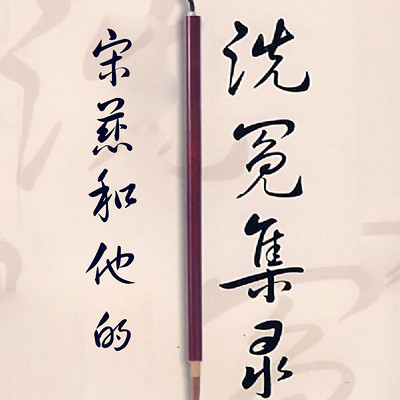 宋慈和他的
洗冤集录